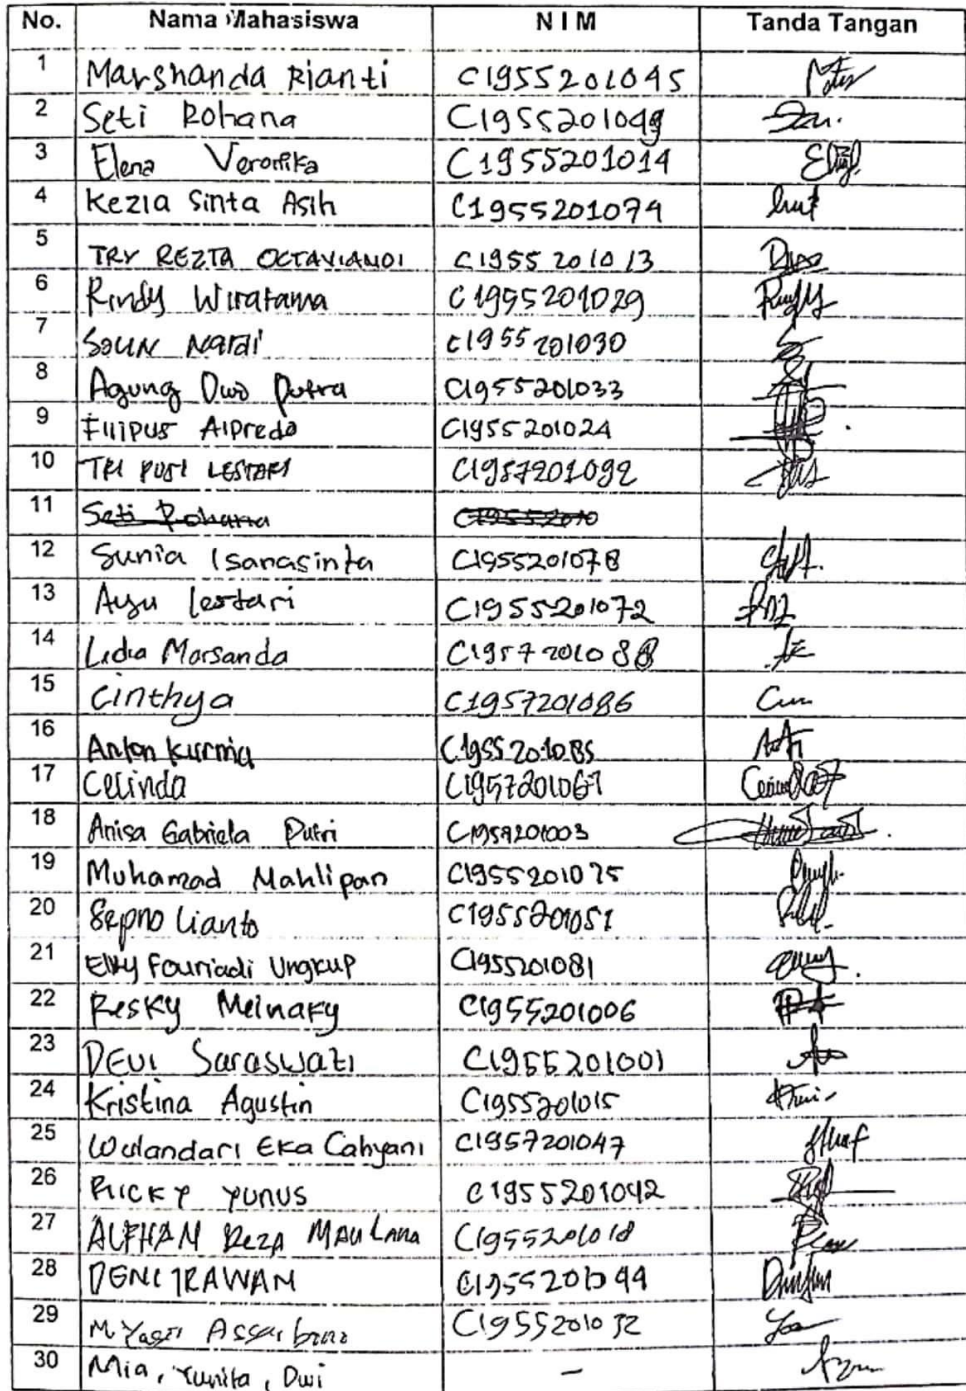 No. Nama Mahasiswa N I M Tanda Tangan
1 Marshanda Rianti C1955201045
2 Seti Rohana C1955201049
3 Elena Veronika C1955201014
4 Kezia Sinta Asih C1955201074
5 TRY REZTA OCTAVIANDI C1955201013
6 Rindy Wiratama C1955201029
7 SAUN NARDI C1955201030
8 Agung Dwo Putra C1955201033
9 Filipus Alpredo C1955201024
10 TRI PUSI LESTARI C1957201092
11 Seti Rohana C19552010
12 Sunia Isanasinta C1955201078
13 Ayu lestari C1955201072
14 Lidia Morsanda C1957201088
15 Cinthya C1957201086
16 Anton Kurnia C1955201085
17 Celinda C1957201067
18 Anisa Gabriela Putri C1957201003
19 Muhamad Mahlipan C1955201075
20 Sepno Lianto C1955201051
21 Elky Fouriadi Ungkup C1955201081
22 Resky Meinaky C1955201006
23 DEVI Saraswati C1955201001
24 Kristina Agustin C1955201015
25 Wulandari Eka Cahyani C1957201047
26 RICKY YUNUS C1955201042
27 ALFHAN REZA MAULANA C1955201018
28 DENI IRAWAN C1955201044
29 M Yasir C1955201032
30 Mia, Yunita, Dwi -